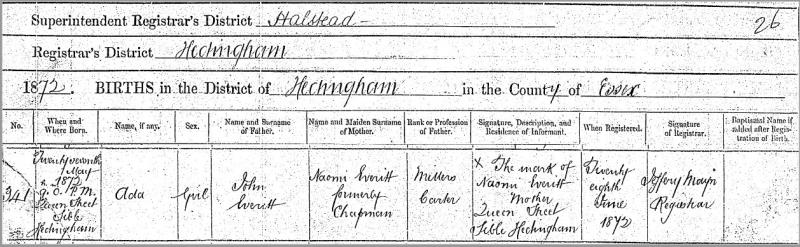 Superintendent Registrar's District Halstead
26
Registrar's District Hedingham
1872. BIRTHS in the District of Hedingham in the County of Essex
No. When and Where Born. Name, if any. Sex. Name and Surname of Father. Name and Maiden Surname of Mother. Rank or Profession of Father. Signature, Description, and Residence of Informant. When Registered. Signature of Registrar. Baptismal Name if added after Registration of Birth.
241
Twenty seventh
May
1872
P.M.
Queen Street
Sible
Hedingham
Ada
Girl
John
Everitt
Naomi Everitt
formerly
Chapman
Millers
Carter
X The mark of
Naomi Everitt
Mother
Queen Street
Sible Hedingham
Twenty
eighth
June
1872
Jeffery
Registrar